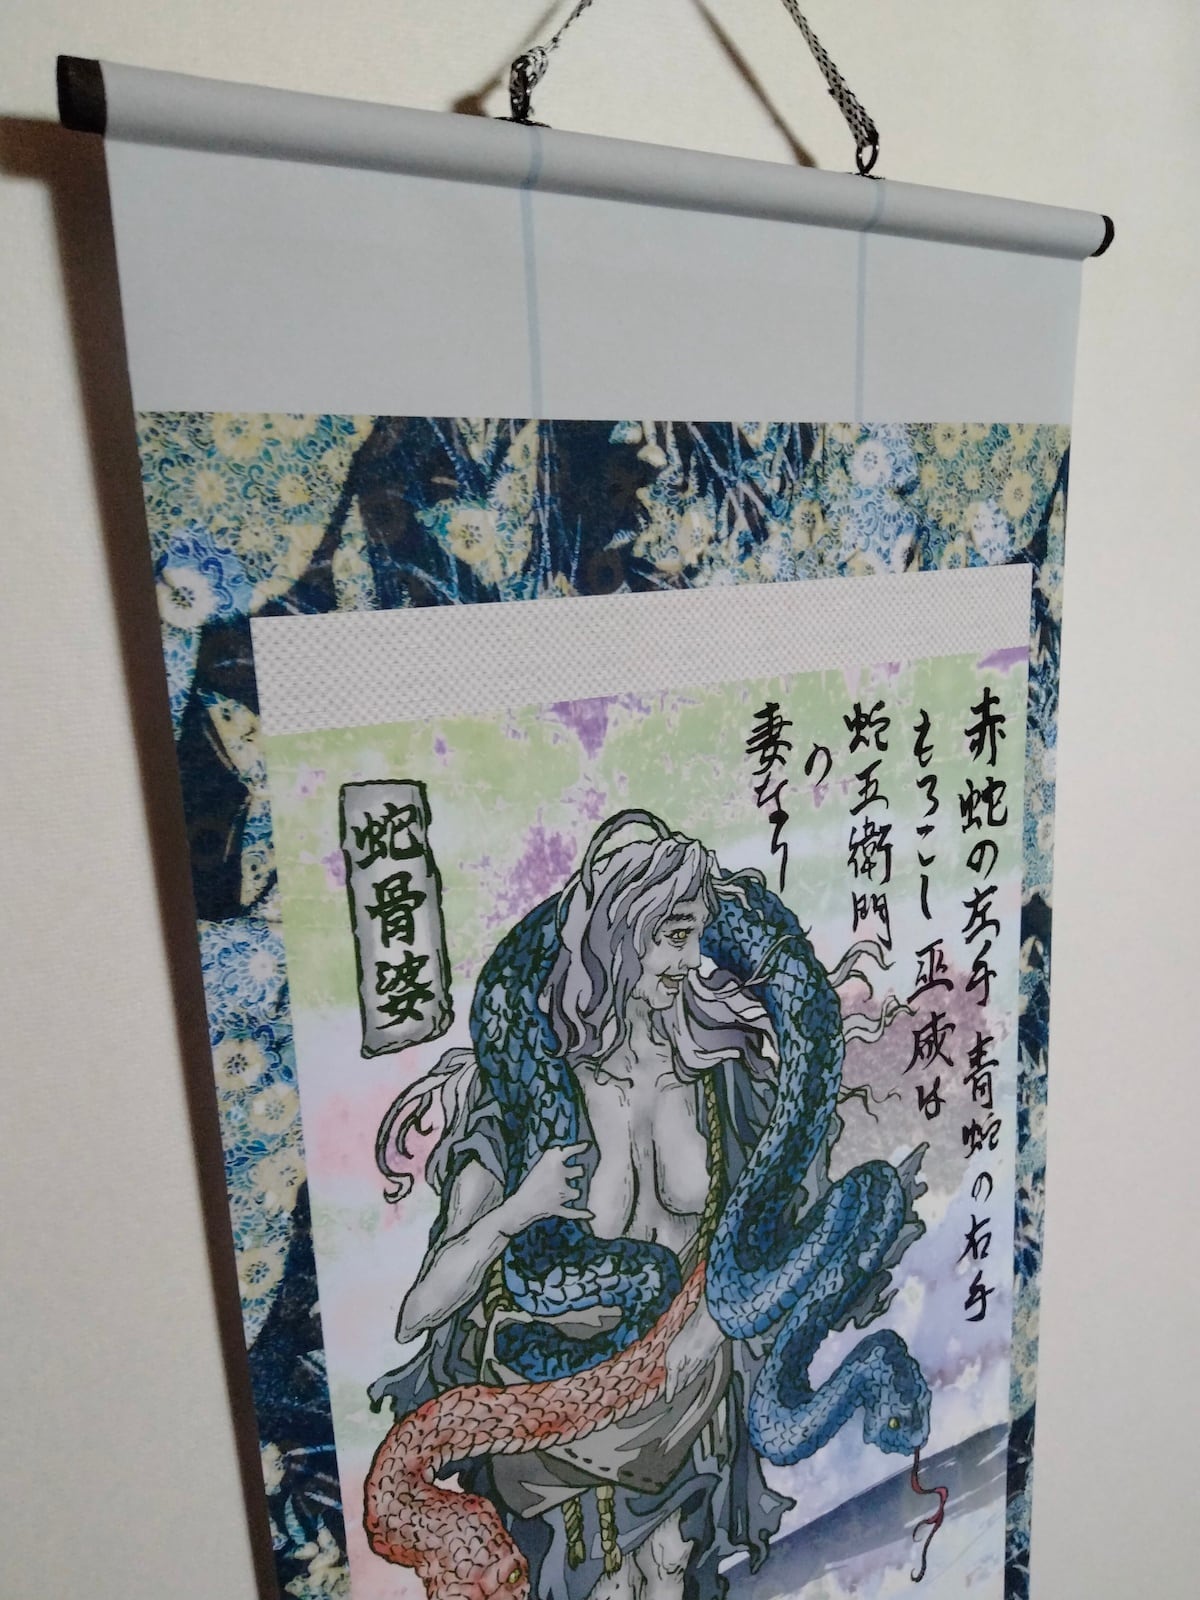 赤蛇の左手 青蛇の右手
もろこし 巫咸は
蛇五衛門
の
妻なり
蛇骨婆